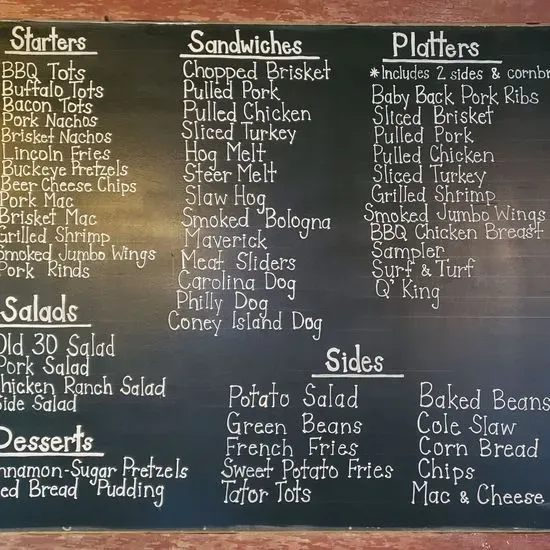 Starters
BBQ Tots
Buffalo Tots
Bacon Tots
Pork Nachos
Brisket Nachos
Lincoln Fries
Buckeye Pretzels
Beer Cheese Chips
Pork Mac
Brisket Mac
Grilled Shrimp
Smoked Jumbo Wings
Pork Rinds
Salads
Old 30 Salad
Pork Salad
Chicken Ranch Salad
Side Salad
Desserts
nnamon-Sugar Pretzels
ed Bread Pudding
Sandwiches
Chopped Brisket
Pulled Pork
Pulled Chicken
Sliced Turkey
Hog Melt
Steer Melt
Slaw Hog
Smoked Bologna
Maverick
Meat Sliders
Carolina Dog
Philly Dog
Coney Island Dog
Platters
*Includes 2 sides & cornbr
Baby Back Pork Ribs
Sliced Brisket
Pulled Pork
Pulled Chicken
Sliced Turkey
Grilled Shrimp
Smoked Jumbo Wings
BBQ Chicken Breast
Sampler
Surf & Turf
Q' King
Sides
Potato Salad
Green Beans
French Fries
Sweet Potato Fries
Tator Tots
Baked Beans
Cole Slaw
Corn Bread
Chips
Mac & Cheese